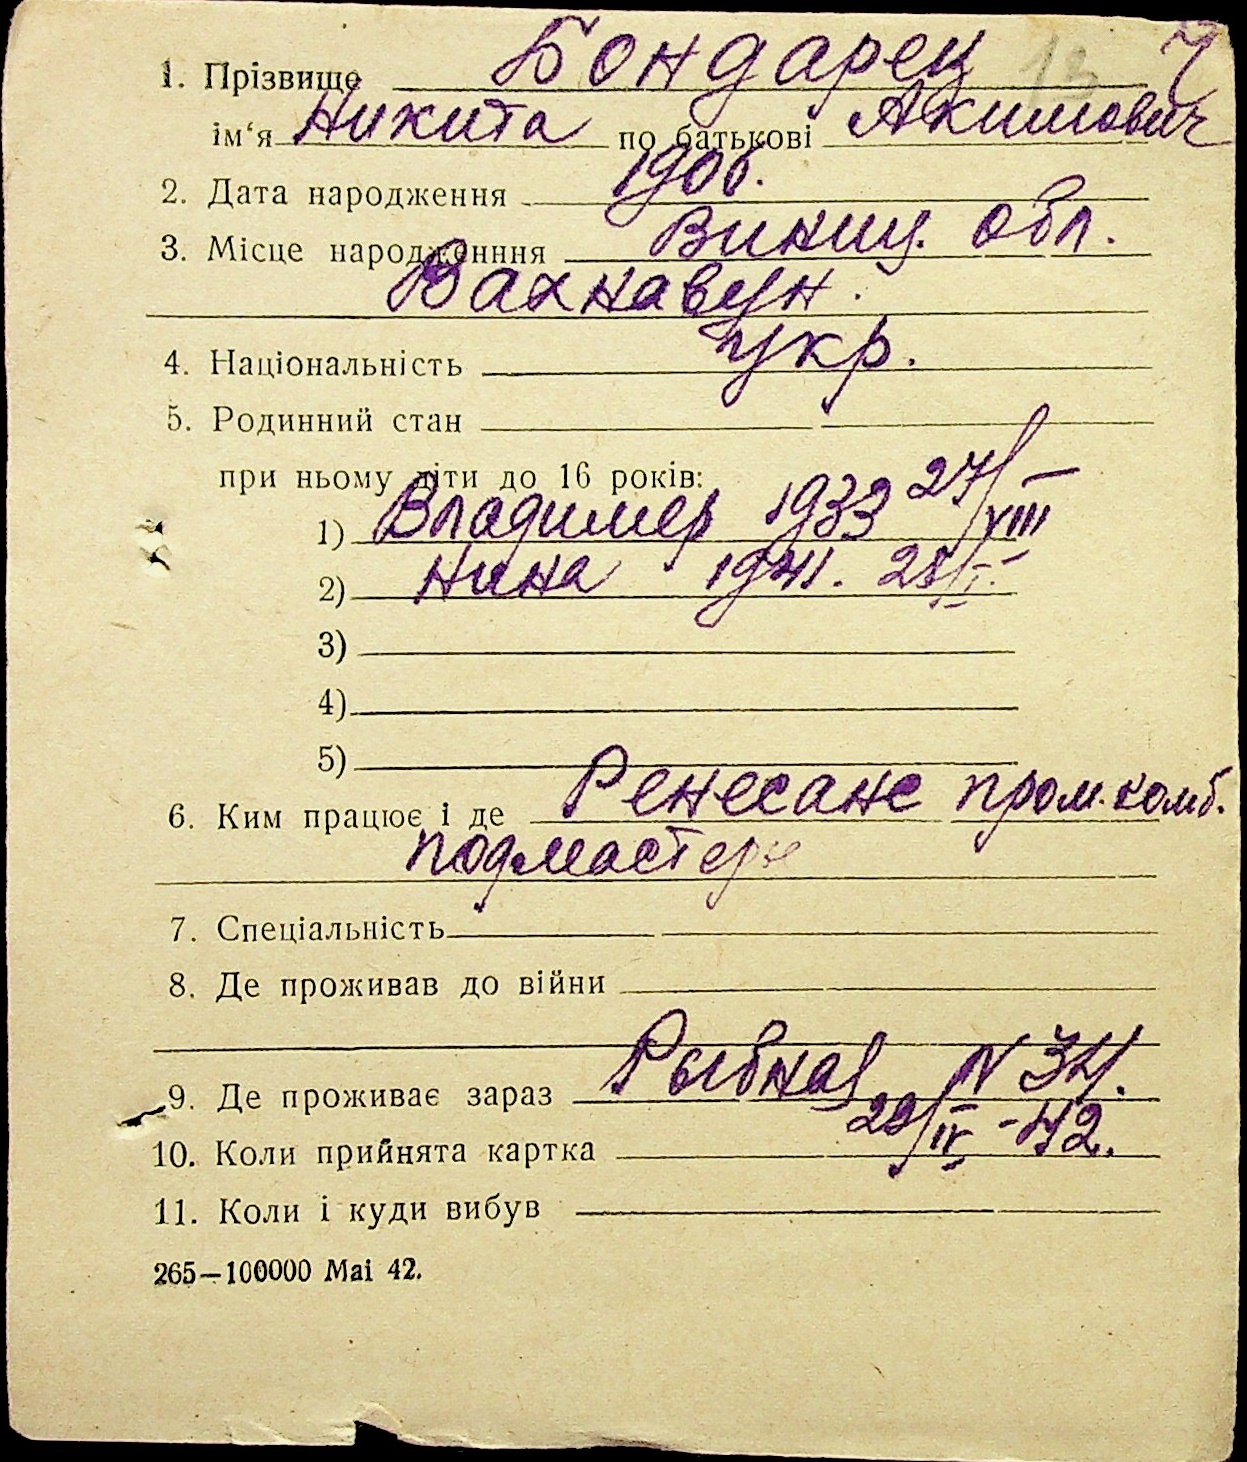 1. Прізвище Бондарец
ім'я Никита по батькові Акимович
2. Дата народження 1906.
3. Місце народженння Виниц. обл.
4. Національність укр.
5. Родинний стан
при ньому діти до 16 років:
1) Владимер 1933 27/VIII
2) Нина 1941. 28/I.
3)
4)
5)
6. Ким працює і де Ренесанс пром. комб.
подмастер
7. Спеціальність
8. Де проживав до війни
9. Де проживає зараз Рыбная N 34.
10. Коли прийнята картка 22/IV - 42.
11. Коли і куди вибув
265—100000 Mai 42.